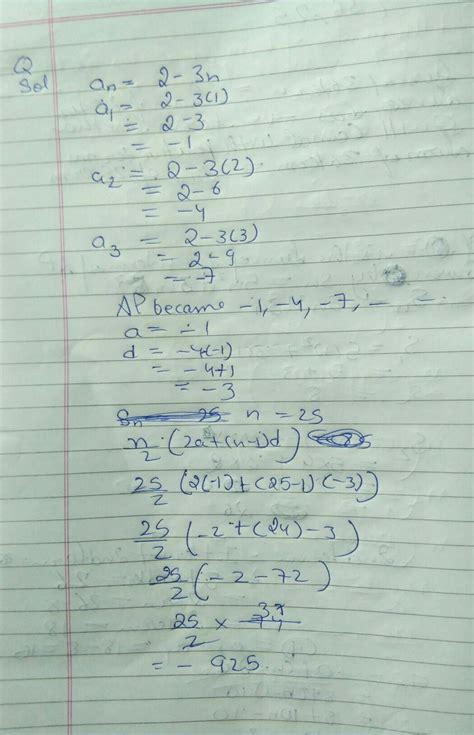 Q
Sol
an = 2-3n
a1 = 2-3(1)
= 2-3
= -1
a2 = 2-3(2)
= 2-6
= -4
a3 = 2-3(3)
= 2-9
= -7
AP became -1, -4, -7, — —
a = -1
d = -4(-1)
= -4+1
= -3
n = 25
n/2 (2a+(n-1)d)
25/2 (2(-1)+(25-1)(-3))
25/2 (-2+(24)-3)
25/2 (-2-72)
25/2 × 74 37
= - 925.